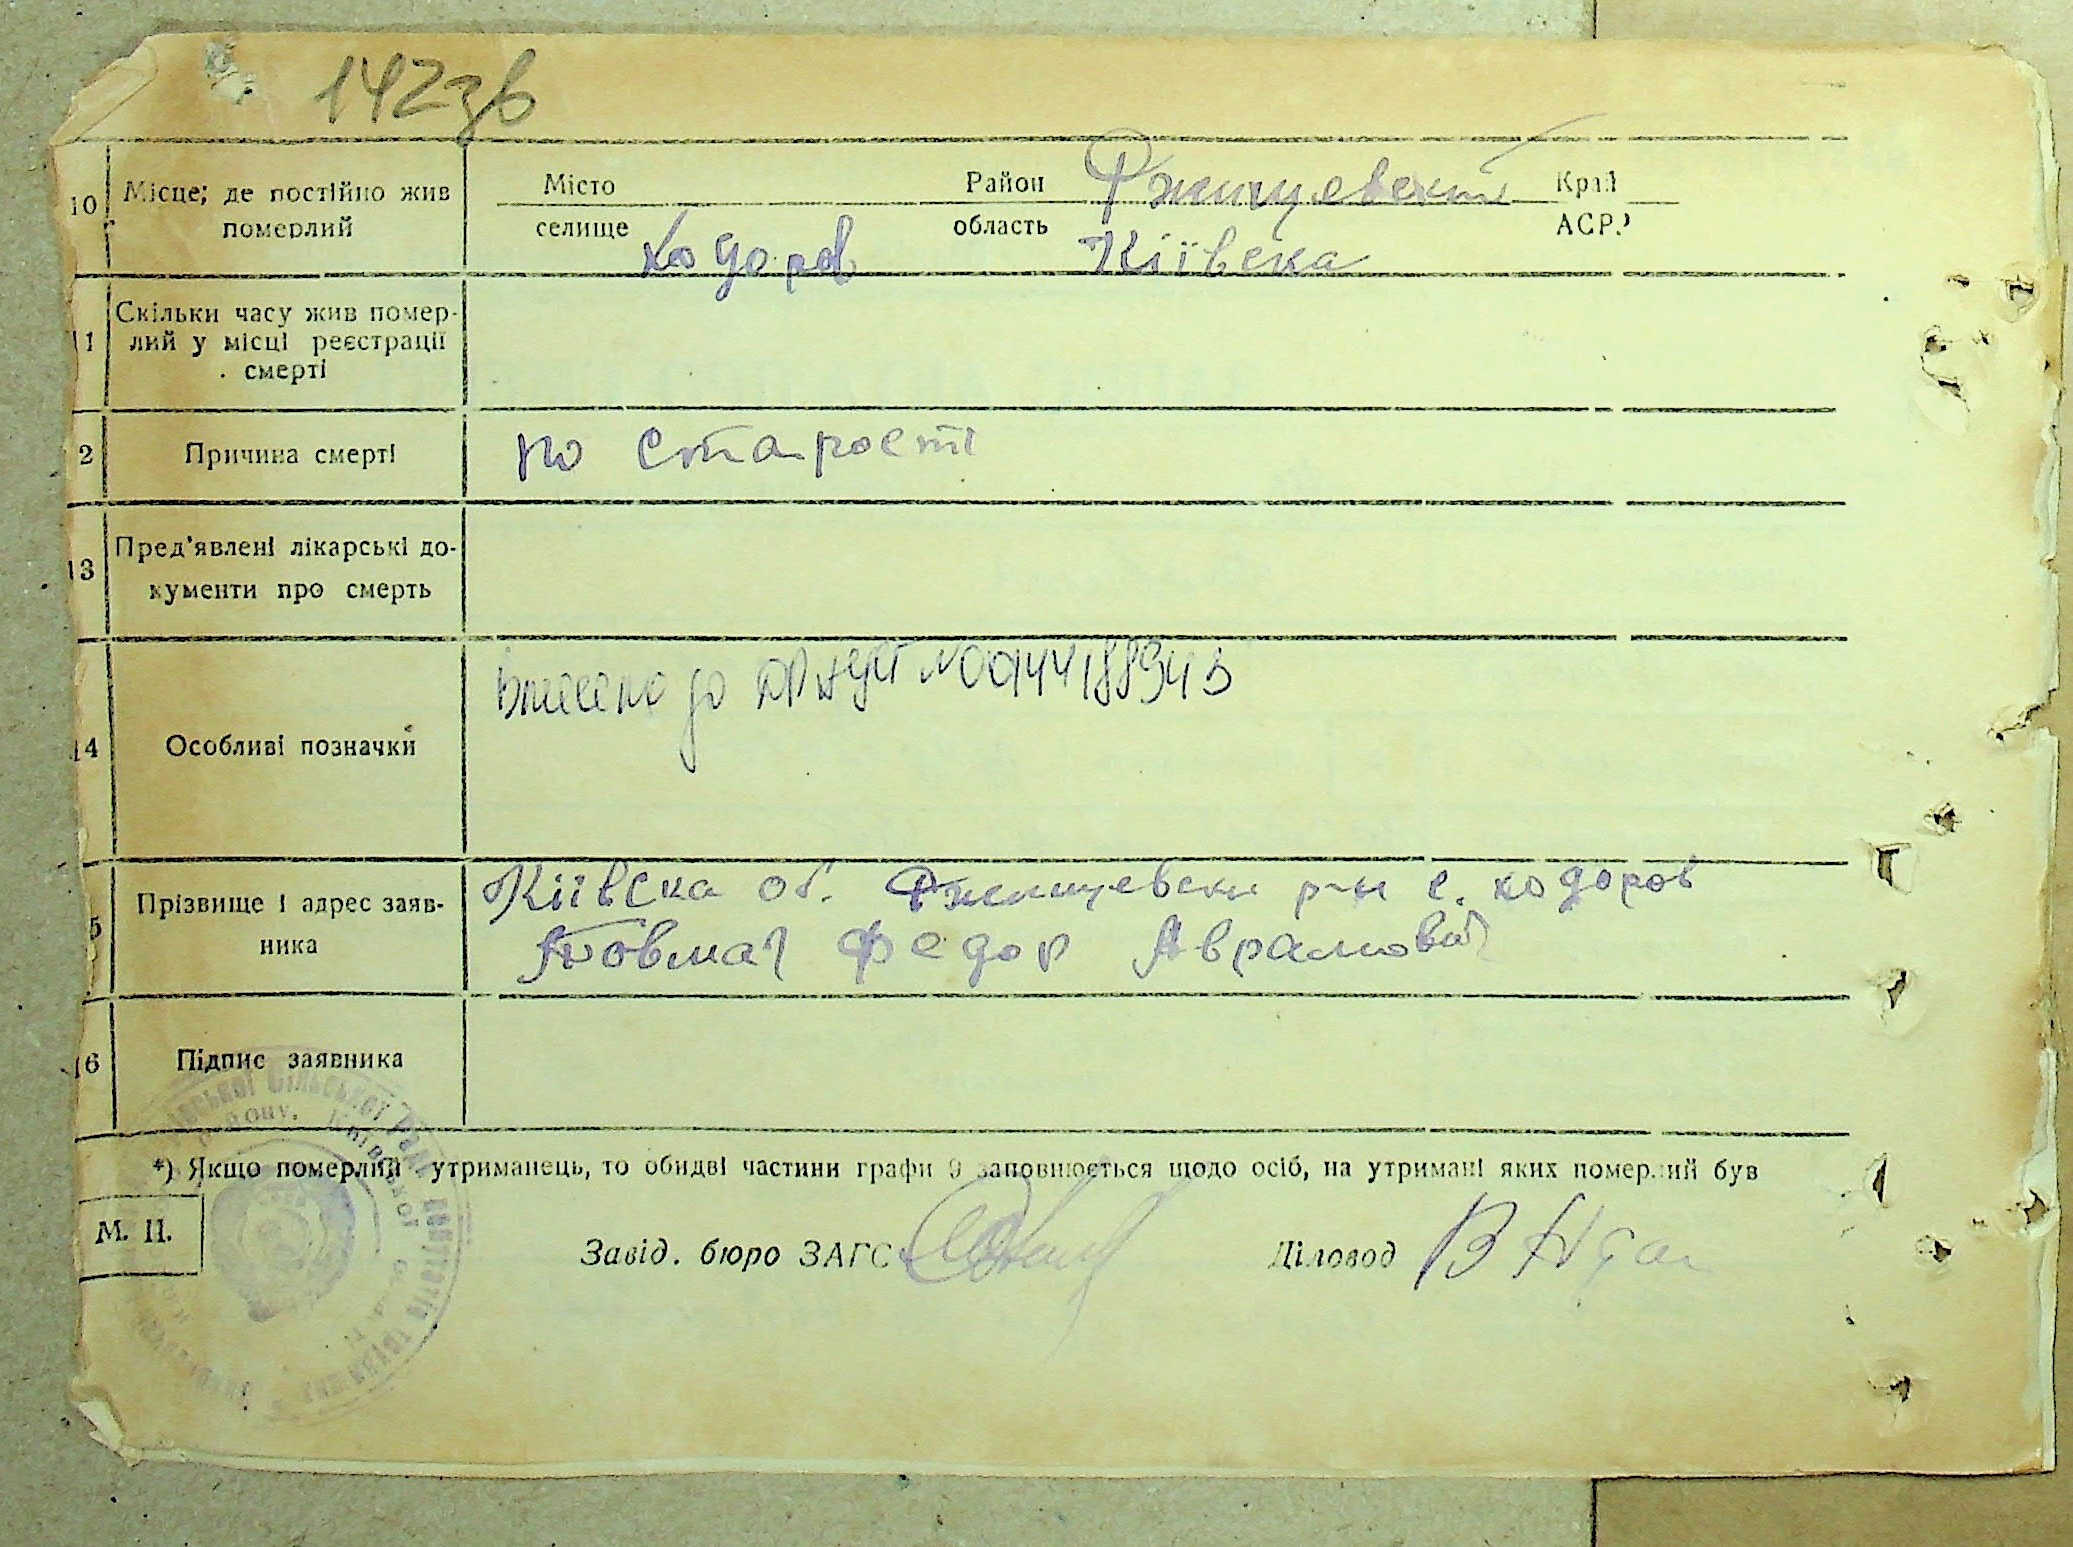 142зв
10 Місце; де постійно жив померлий
Місто Район Ржищевский Край
селище Ходоров область Київска АСРР
11 Скільки часу жив помер-
лий у місці реєстрації
смерті
2 Причина смерті по старості
13 Пред'явлені лікарські до-
кументи про смерть
14 Особливі позначки Внесено до ДРАЦСГ №00144188943
5 Прізвище і адрес заяв-
ника
Київска об. Ржищевски р-н с. ходоров
Товмач Федор Аврамович
16 Підпис заявника
*) Якщо померлий утриманець, то обидві частини графи 9 заповнюється щодо осіб, на утримані яких померлий був
М. П. Завід. бюро ЗАГС Діловод
Сільської Ради
району, Київської